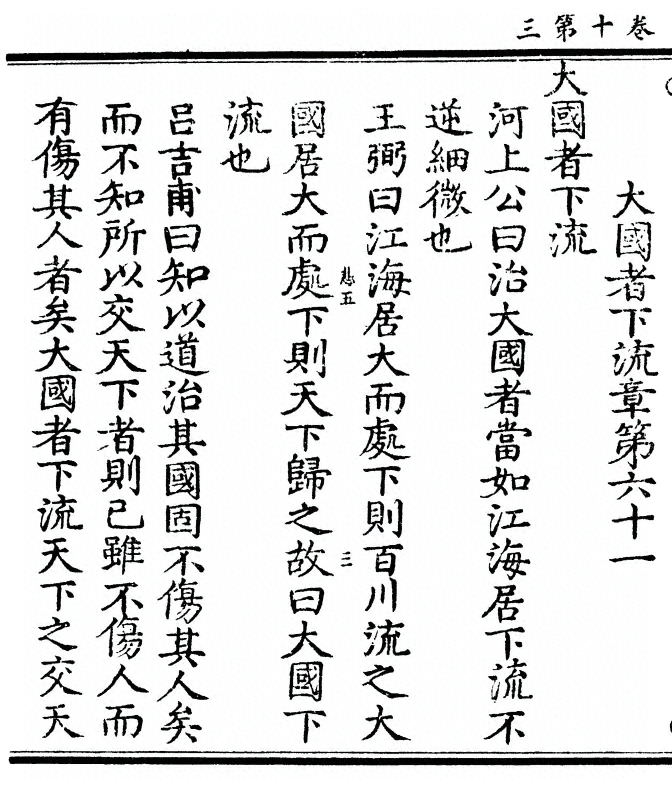 卷十第三
大國者下流章第六十一
大國者下流
河上公曰治大國者當如江海居下流不
逆細微也
王弼曰江海居大而處下則百川流之大
悲五
三
國居大而處下則天下歸之故曰大國下
流也
呂吉甫曰知以道治其國固不傷其人矣
而不知所以交天下者則已雖不傷人而
有傷其人者矣大國者下流天下之交天